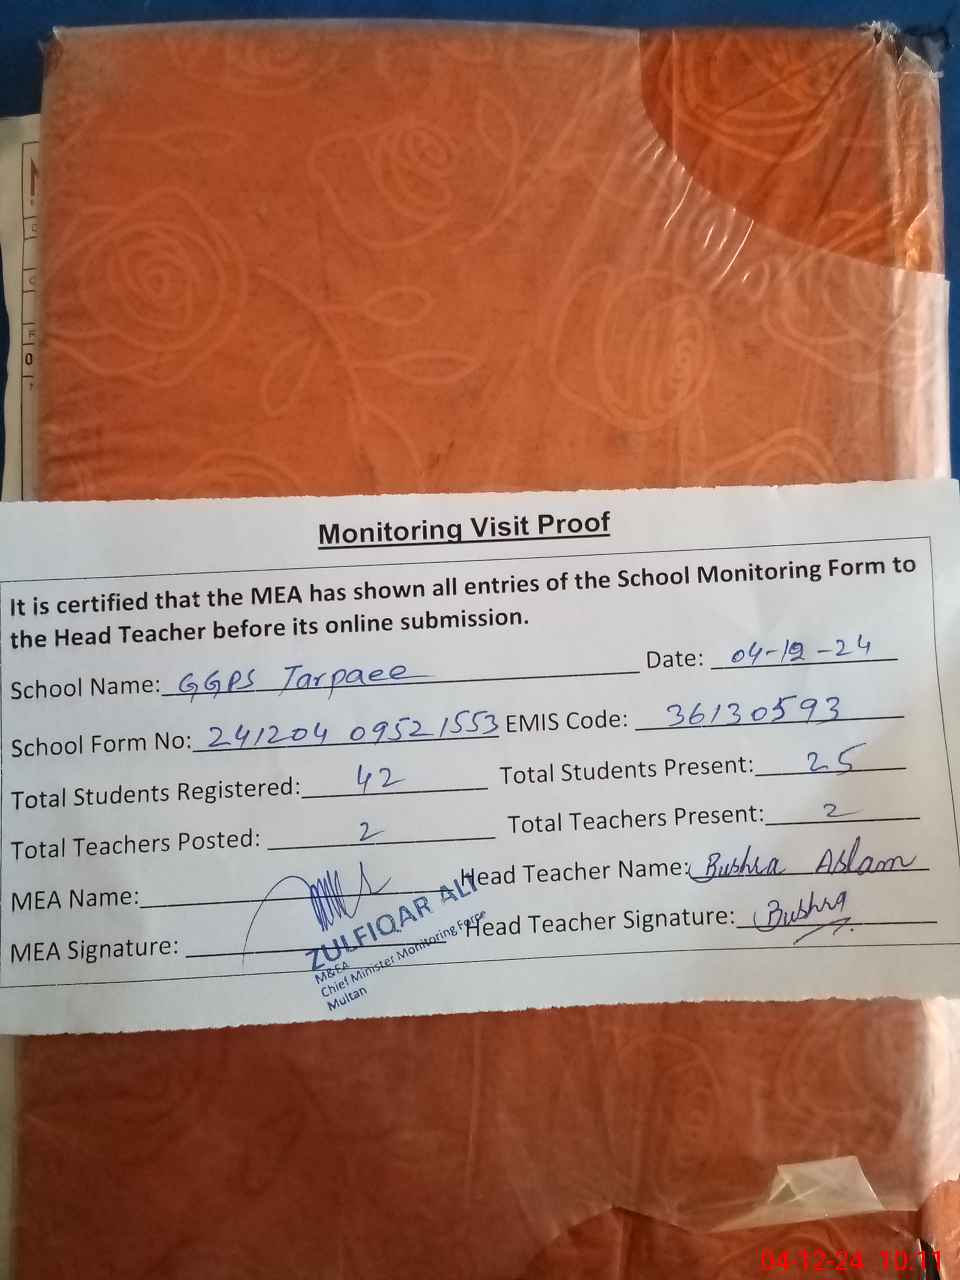 Monitoring Visit Proof
It is certified that the MEA has shown all entries of the School Monitoring Form to
the Head Teacher before its online submission.
School Name: GGPS Tarpaee Date: 04-12-24
School Form No: 241204 09521553 EMIS Code: 36130593
Total Students Registered: 42 Total Students Present: 25
Total Teachers Posted: 2 Total Teachers Present: 2
MEA Name: Head Teacher Name: Bushra Aslam
MEA Signature: Head Teacher Signature: Bushra
ZULFIQAR ALI
M&EA
Chief Minister Monitoring Force
Multan
04-12-24 10:11